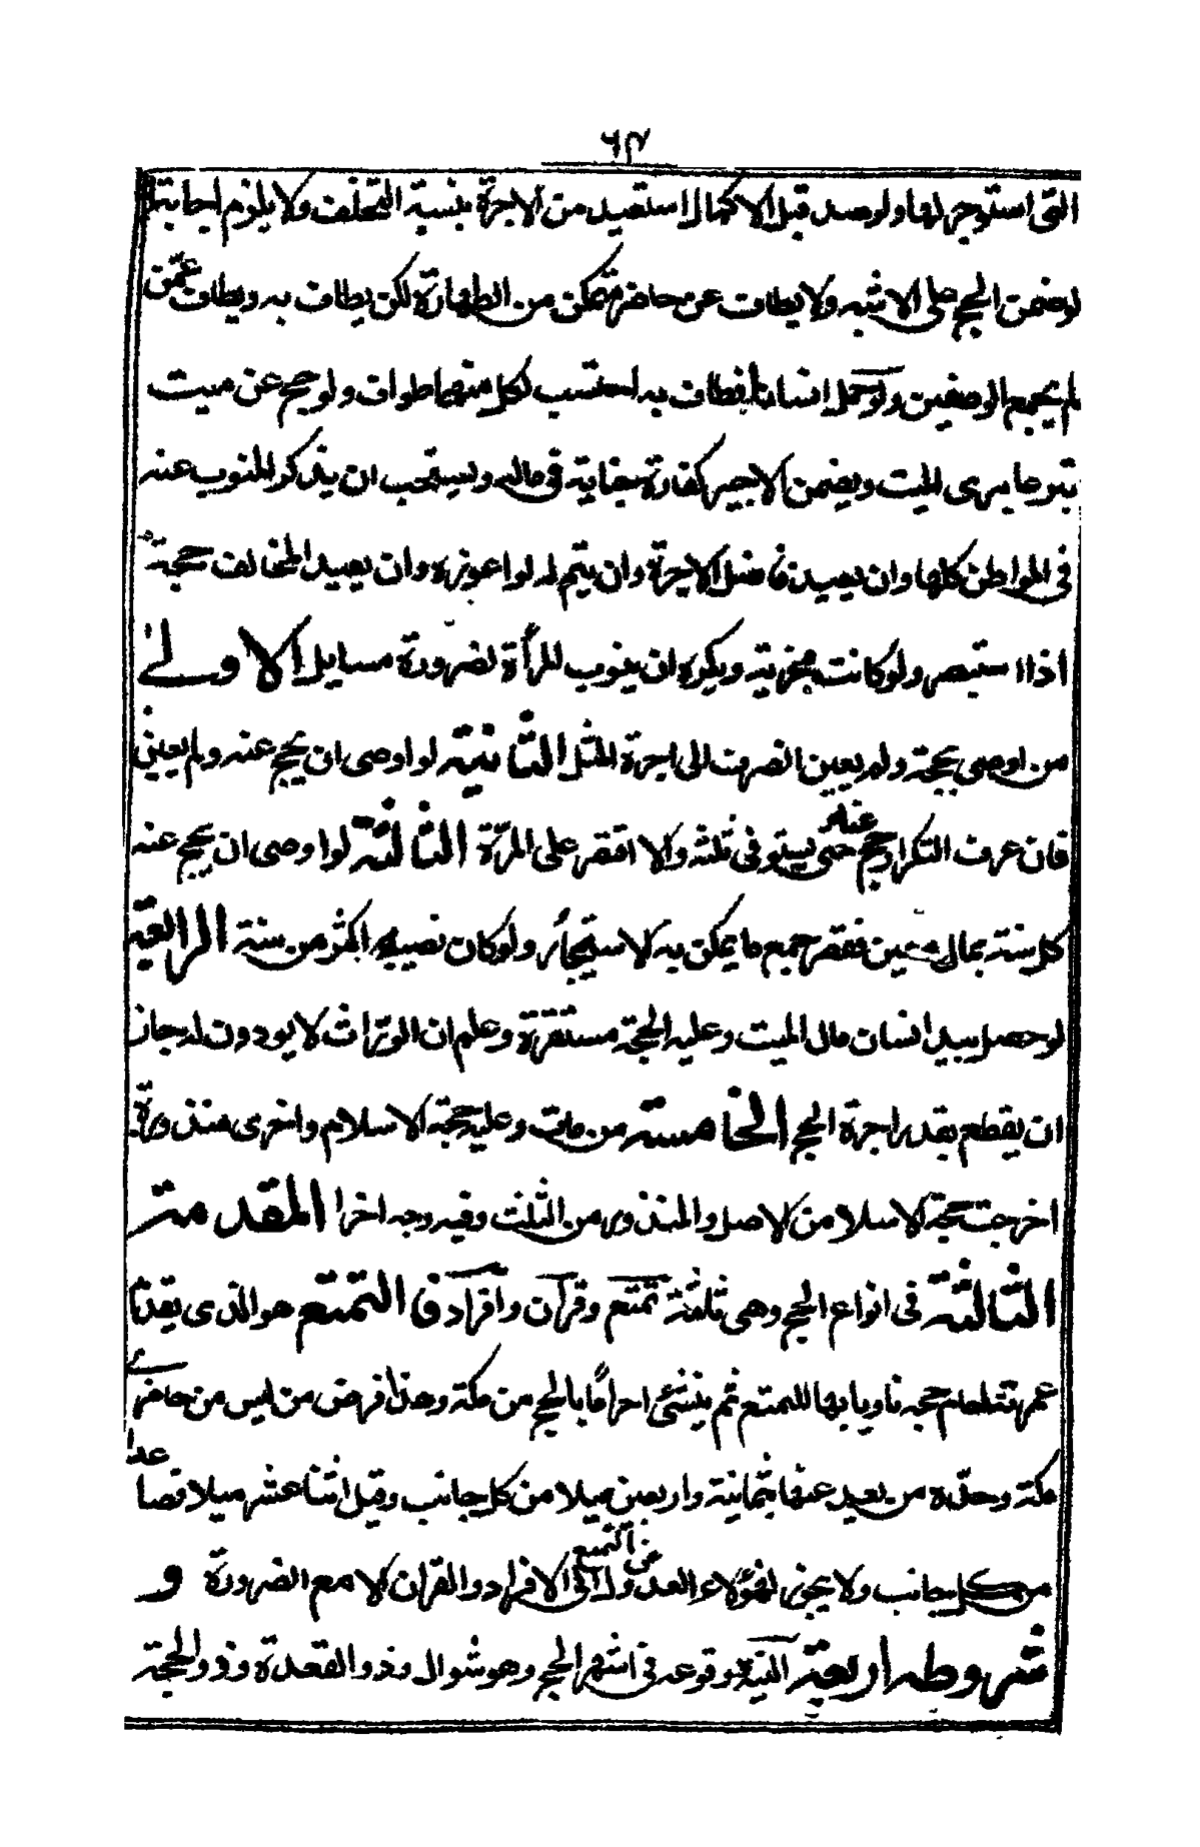 ٦٧
التى استوجر لها ولو صد قبل الاكمال استعيد من الاجرة بنسبة المتخلف ولا يلزم اجابته
لو ضمن الحج على الاشبه ولا يطاف عن حاضر متمكن من الطهارة لكن يطاف به ويطاف عمّن
لم يجمع الوصفين ولو حمل انسانا فطاف به احتسب لكل منهما طواف ولو حج عن ميت
تبرعا برى الميت ويضمن الاجير كفارة جنايته فى ماله ويستحب ان يذكر المنوب عنه
فى المواطن كلها وان يعيد فاضل الاجرة وان يتم له لو اعوزه وان يعيد المخالف حجته
اذا استبصر ولو كانت مجزية ويكره ان ينوب المرأة لضرورة مسايل الاولى
من اوصى بحجة ولم يعين انصرفت الى اجرة المثل الثانية لو اوصى ان يحج عنه ولم يعين
فان عرف التكرار حج عنه حتى يستوفى ثلثه والا اقتصر على المرّة الثالثة لو اوصى ان يحج عنه
كل سنة بمال معين فقصر جمع ما يمكن به الاستيجار ولو كان نصيب اكثر من سنة الرابعة
لو حصل بيد انسان مال الميت وعليه الحجة مستقرة وعلم ان الورّاث لا يودون له جاز
ان يقطع بقدر اجرة الحج الخامسة من مات وعليه حجة الاسلام واخرى منذورة
اخرجت حجة الاسلام من الاصل والمنذور من الثلث وفيه وجه اخر المقدمة
الثالثة فى انواع الحج وهى ثلثة تمتع وقران وافراد ف التمتع هو الذى يقدم
عمرته امام حجه ناويا بها للتمتع ثم ينشئ احراما بالحج من مكة وهذا فرض من ليس من حاضرى
مكة وحدّه من بعد عنها بثمانية واربعين ميلا من كل جانب وقيل اثنا عشر ميلا فصاعدا
من كل جانب ولا يجوز لهؤلاء العدول عن التمتع الى الافراد والقران الا مع الضرورة و
شروطه اربعة النية ووقوعه فى اشهر الحج وهو شوال وذو القعدة وذو الحجة